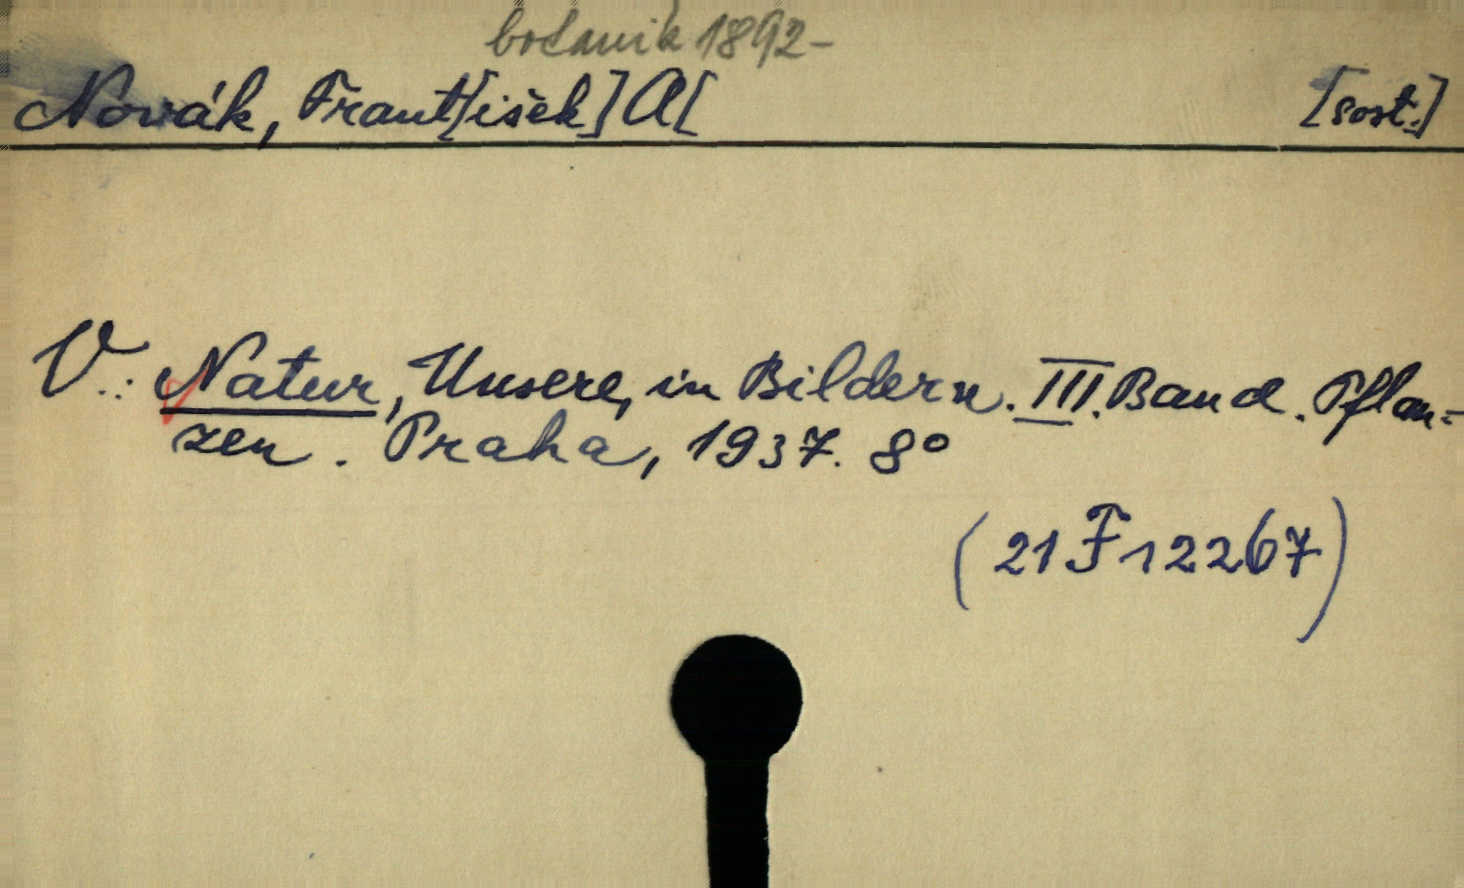 botanik 1892-
Novák, Frant[išek] A[ [sost.]
V.: Natur, Unsere, in Bildern. III. Band. Pflan=
zen. Praha, 1937. 8°
(21 F 12267)